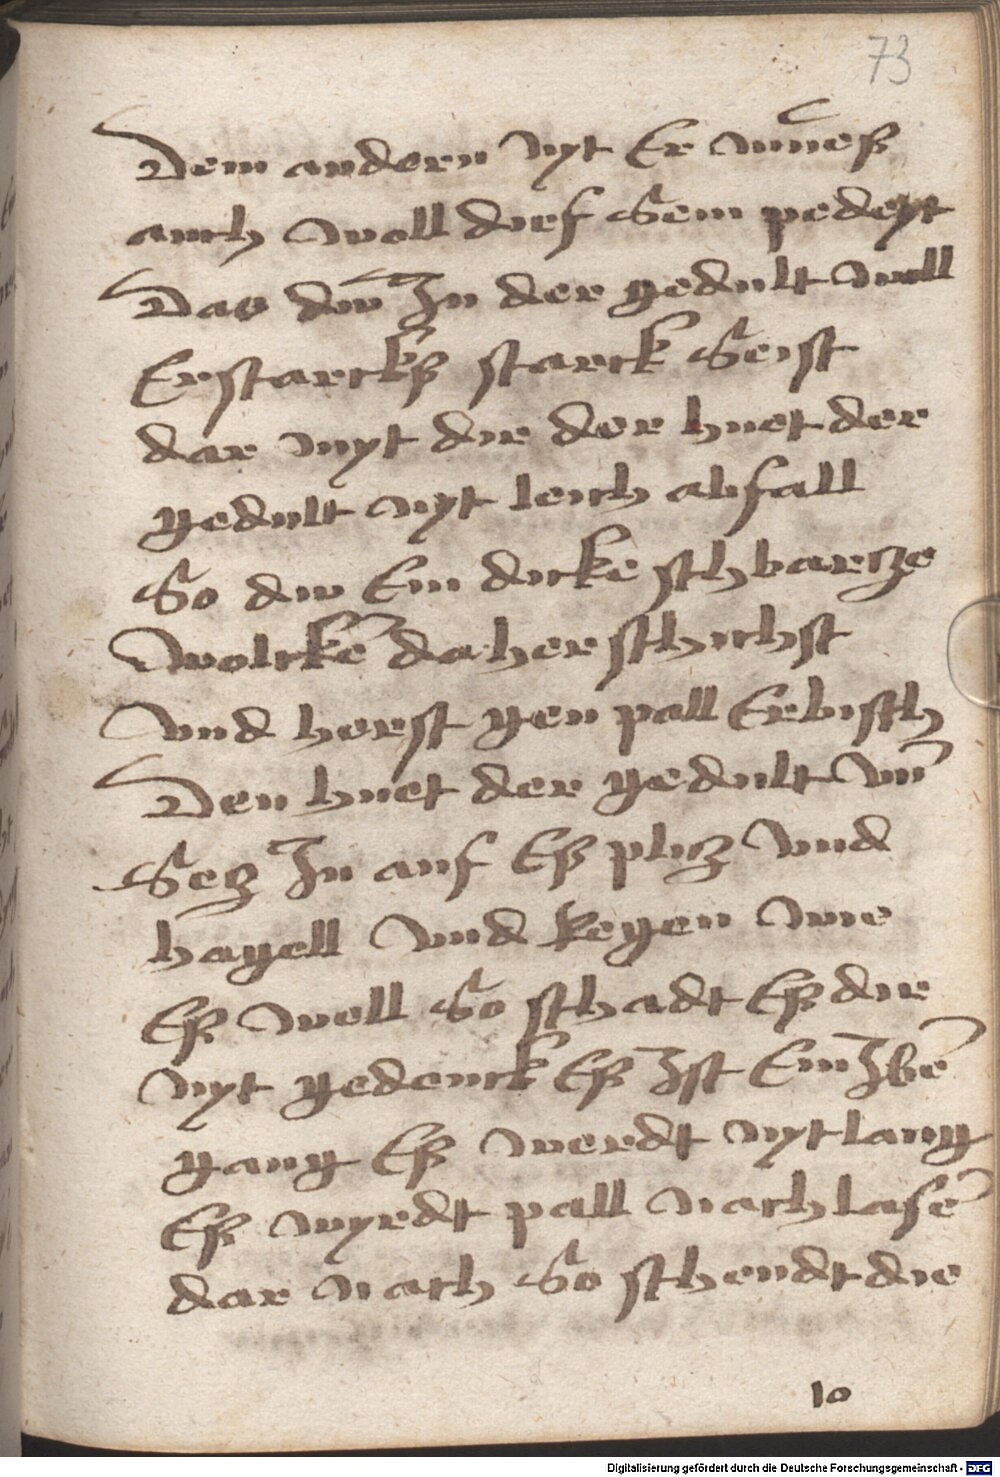 73
Dem andern nyt Er mūeß
auch woll dief Sein pedeyt
Das dw In der gedult woll
Erstarckß starck Seist
dar myt dir der huet der
gedult nyt leich abfall
So dw Ein dicke schbarcze
wolckē daher schichst
Vnd herst gen pall Erbisch
Den huet der gedult vn̄
Secz In auf Eß plicz vnd
hagell vnd Regen wie
Eß well So schadt Eß dir
nyt gedenck Eß Ist Ein Ibē
gang Eß werdt nyt lang
Eß wyrdt pall nach lasē
dar nach So schendt die
10
Digitalisierung gefördert durch die Deutsche Forschungsgemeinschaft - DFG